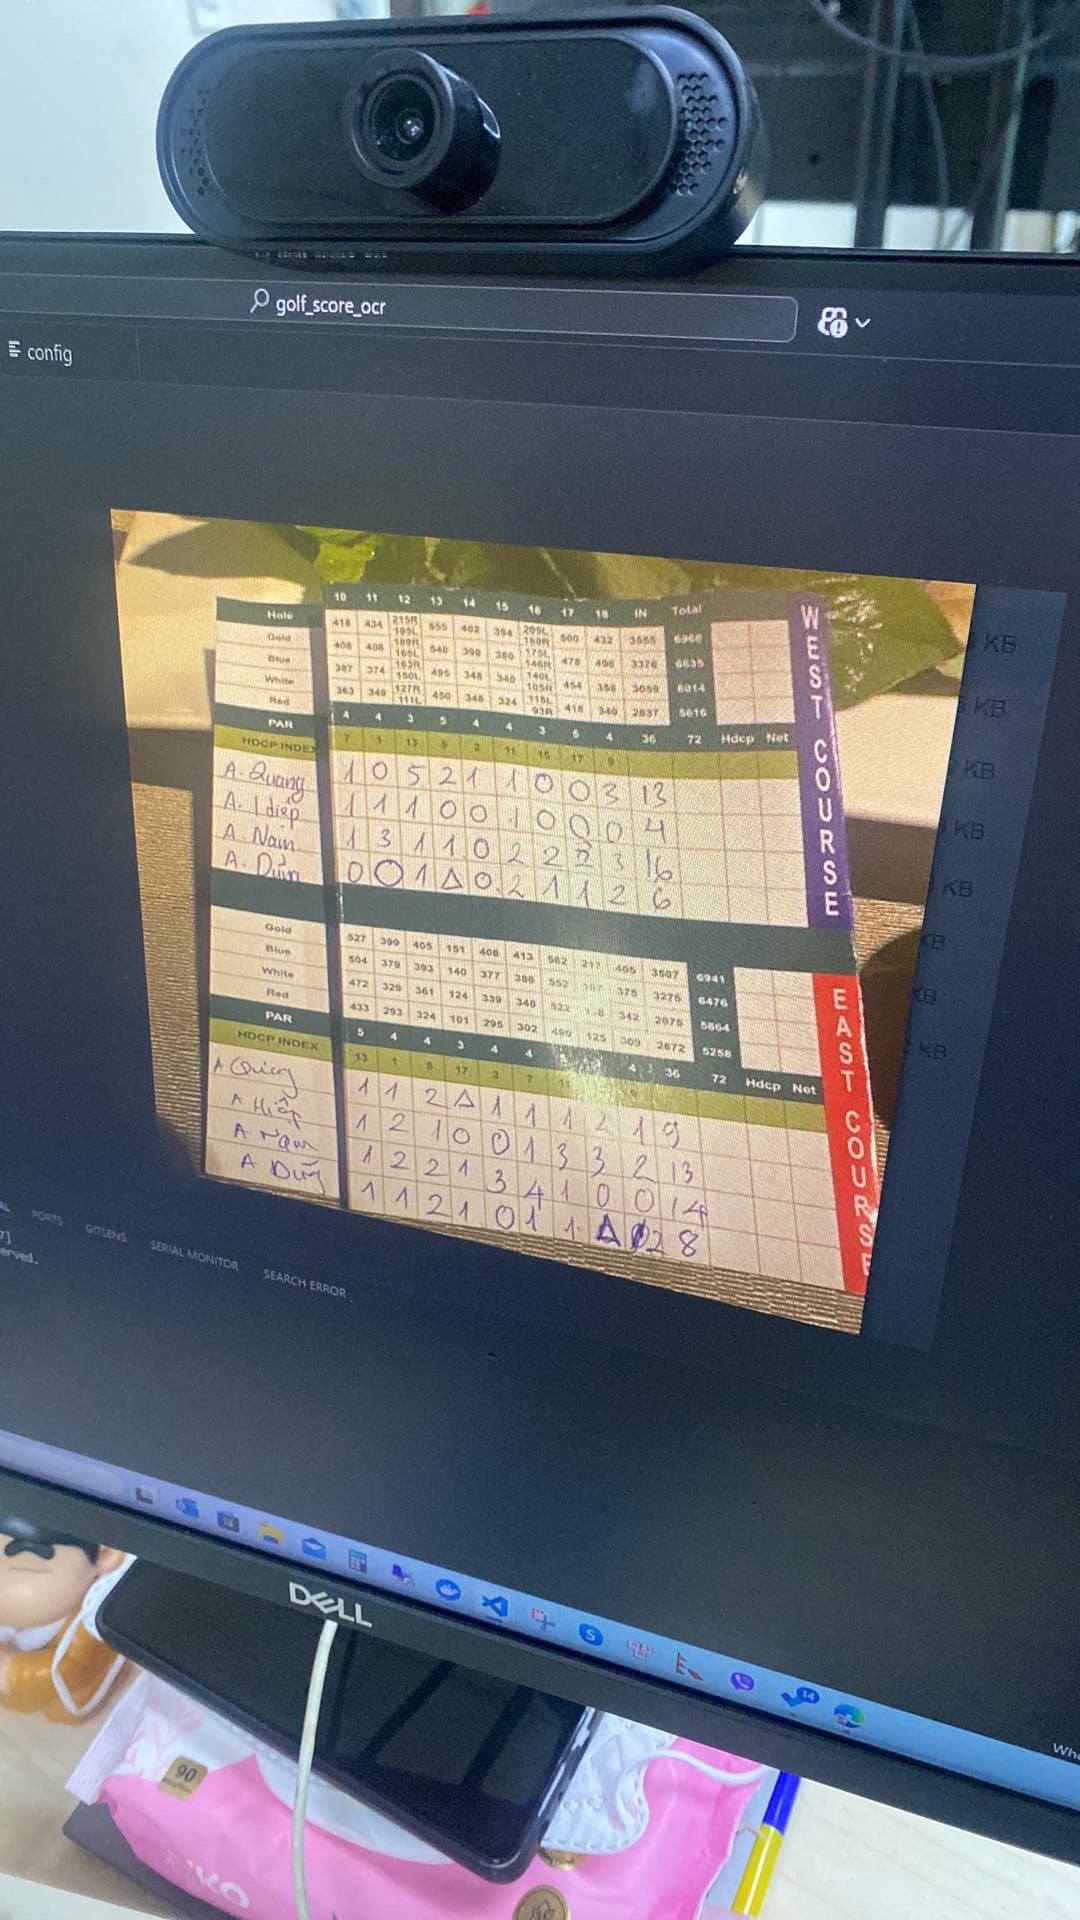 golf_score_ocr
config
KB
KB
KB
KB
KB
KB
KB
KB
Hole 10 11 12 13 14 15 16 17 18 IN Total
Gold 418 434 215R 199L 555 402 394 209L 180R 500 432 3555 6968
Blue 408 408 189R 165L 540 390 380 175L 146R 478 408 3370 6635
White 387 374 163R 150L 495 348 340 140L 105R 454 358 3059 6014
Red 363 349 127R 111L 450 348 324 115L 93R 418 340 2837 5616
PAR 4 4 3 5 4 4 3 5 4 36 72 Hdcp Net
HDCP INDEX 7 1 13 5 2 11 15 17 9
A. Quang 1 0 5 2 1 1 0 0 3 13
A. 1 1 1 0 0 1 0 0 0 4
A. Nam 1 3 1 1 0 2 2 2 3 16
A. 0 0 1 Δ 0 2 1 1 2 6
WEST COURSE
Gold 527 399 405 151 408 413 582 217 405 3507 6941
Blue 504 379 393 140 377 386 552 375 3275 6476
White 472 329 361 124 339 348 342 5864
Red 433 293 324 101 295 302 490 125 309 2672 5258
PAR 5 4 4 3 4 4 4 36 72 Hdcp Net
HDCP INDEX 13 1 5 17 3 7 9
A 1 1 2 Δ 1 1 1 2 1 9
A 1 2 1 0 0 1 3 3 2 13
A 1 2 2 1 3 4 1 0 0 14
A 1 1 2 1 0 1 1 Δ 2 8
EAST COURSE
PORTS GITLENS SERIAL MONITOR SEARCH ERROR
erved.
14
DELL
90